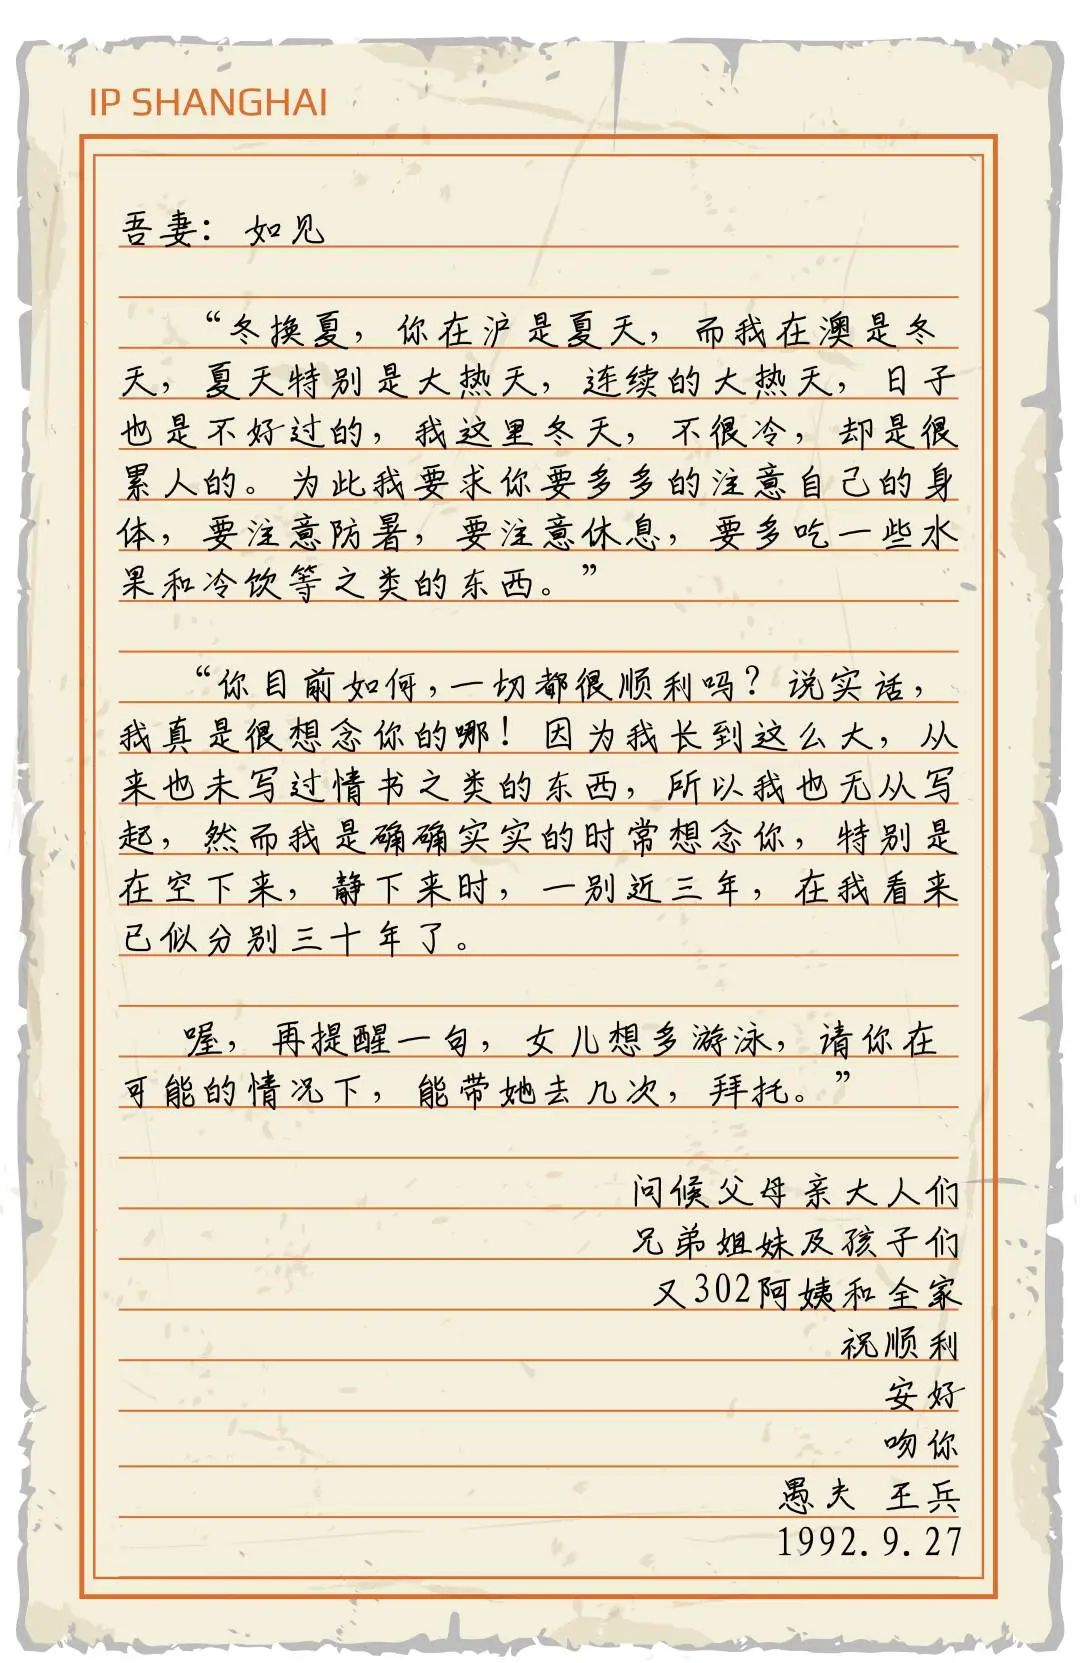 IP SHANGHAI
吾妻：如见
“冬换夏，你在沪是夏天，而我在澳是冬
天，夏天特别是大热天，连续的大热天，日子
也是不好过的，我这里冬天，不很冷，却是很
累人的。为此我要求你要多多的注意自己的身
体，要注意防暑，要注意休息，要多吃一些水
果和冷饮等之类的东西。”
“你目前如何，一切都很顺利吗？说实话，
我真是很想念你的哪！因为我长到这么大，从
来也未写过情书之类的东西，所以我也无从写
起，然而我是确确实实的时常想念你，特别是
在空下来，静下来时，一别近三年，在我看来
已似分别三十年了。
喔，再提醒一句，女儿想多游泳，请你在
可能的情况下，能带她去几次，拜托。”
问候父母亲大人们
兄弟姐妹及孩子们
又302阿姨和全家
祝顺利
安好
吻你
愚夫 王兵
1992.9.27